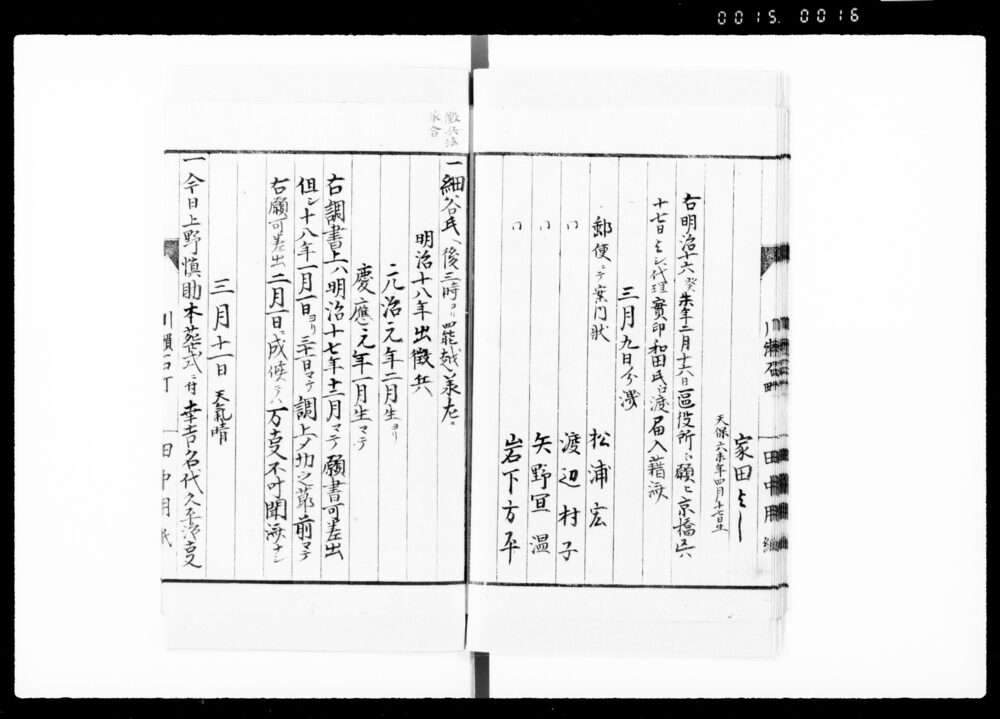 0015. 0016
家田よし
天保六未年四月十七日生
右明治十六癸未年二月十六日区役所ニ願ヒ京橋区ヘ
十七日よし代理実印和田氏ニ渡届入籍済
三月九日分渡
郵便ニテ案内状 松浦宏
〃 渡辺村子
〃 矢野宣温
〃 岩下方平
徴兵法
一細谷氏ヘ後三時ヨリ罷越義左ニ
明治十八年出徴兵
元治元年二月生ヨリ
慶應元年一月生マテ
右調書上ハ明治十七年十二月マテ願書可差出
但シ十八年一月一日ヨリ三十一日マテ調上ノ功之節前マテ
右願可差出二月一日ニ成候テハ万事不叶聞済ナシ
三月十一日 天氣晴
一今日上野慎助本葬式ニ付幸吉名代久平次事
川瀬石町 田中用紙